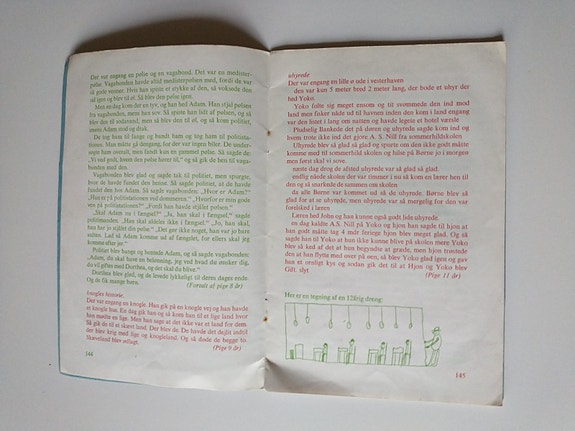 Der var engang en pølse og en vagabond. Det var en medister-
pølse. Vagabonden havde altid medisterpølsen med, fordi de var
så gode venner. Hvis han spiste et stykke af den, så voksede den
ud igen og blev til et. Så blev den pølse igen.
Men en dag kom der en tyv, og han hed Adam. Han stjal pølsen
fra vagabonden, mens han sov. Så spiste han lidt af pølsen, og så
blev den til endevend, men så blev den til et, og så kom politiet,
mente Adam stod og drak.
De tog fem til fange og bandt ham og tog ham til politista-
tionen. Man måtte gå dengang, for der var ingen biler. De under-
søgte ham overalt, men fandt kun en gammel pølse. Så sagde de
„Vi ved godt, hvem den pølse hører til,“ og så gik de hen til vaga-
bonden med den.
Vagabonden blev glad og sagde tak til politiet, men spurgte,
hvor de havde fundet den henne. Så sagde politiet, at de havde
fundet den hos Adam. Så sagde vagabonden: „Hvor er Adam?“
„Han er på politistationen ved dommeren.“ „Hvorfor er men gode
ven på politistationen?“ „Fordi han havde stjålet pølsen.“
„Skal Adam nu i fængsel?“ „Ja, han skal i fængsel,“ sagde
politimanden. „Han skal aldeles ikke i fængsel.“ „Jo, han skal,
han har jo stjålet din pølse.“ „Det gør ikke noget, han var jo bare
sulten. Lad så Adam komme ud af fængslet, for ellers skal jeg
komme efter jer.“
Politiet blev bange og hentede Adam, og så sagde vagabonden:
„Adam, du skal have en belønning, jeg ved hvad du ønsker dig,
du vil giftes med Dorthea, og det skal du blive.“
Dorthea blev glad, og de levede lykkeligt til deres dages ende.
Og de fik mange børn.
(Fortalt af pige 8 år)
knogles historie.
Der var engang en knogle. Han gik på en knogle vej og han havde
et knogle hus. En dag gik han og så kom han til et lige land hvor
han mødte en lige. Men han sagte at det ikke var et land for dem.
Så gik de til et skævt land. Der blev de. De havde det dejlit indtil
der blev krig med lige og knogleland. Og så døde de begge to.
Skæveland blev ødlagt.
(Pige 9 år)
144
uhyrede
Der var engang en lille ø ude i vesterhaven
den var kun 5 meter bred 2 meter lang, der bode et uhyr der
hed Yoko.
Yoko følte sig meget ensom og tit svommede den ind mod
land men folker nåde ud til havnen inden den kom i land engang
var den listet i lang om natten og havde legete et hotel værsle
Pludselig Bankede det på deren og uhyrede sagde kom ind og
hvem trote ikke ind det gjore A. S. Nill fra sommerhildskolen
Uhyrede blev så glad så glad og spurte om den ikke godt måtte
komme med til sommerhild skolen og hilse på Børne jo i morgen
men først skal vi sove.
næste dag droge de afsted uhyrede var så glad så glad
endlig nåede skolen der var timner i nu så kom en læren hen til
den og så snarkede de sammen om skolen
da alle Børne var kommet ud så de uhyrede. Børne blev så
glad for at se uhyrede, men uhyrede var så mærgelig for den var
forelsked i læren
Læren hed John og han kunne også godt lide uhyrede.
en dag kaldte A.S. Nil på Yoko og han sagde til hjon at
han godt måtte tag 4 mdr feringe hjon blev meget glad. Og så
sagde han til Yoko at hun ikke kunne blive på skolen mere Yoko
blev så ked af det at hun begyndte at græde, men hjon trøstede
den at han flytte med over på øen, så blev Yoko glad igen og gav
han et ordenligt kys og sodan gik det til at Hjon og Yoko blev
Gift. slyt
(Pige 11 år)
Her er en tegning af en 12årig dreng:
145